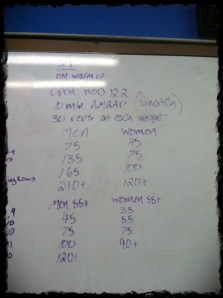 OM warm up
Open WOD 12.2
10 min AMRAP (Snatch)
30 reps at each weight
Men Women
75 45
135 75
165 100
210+ 120+
Men 55+ Women 55+
45 35
75 55
100 75
120+ 90+